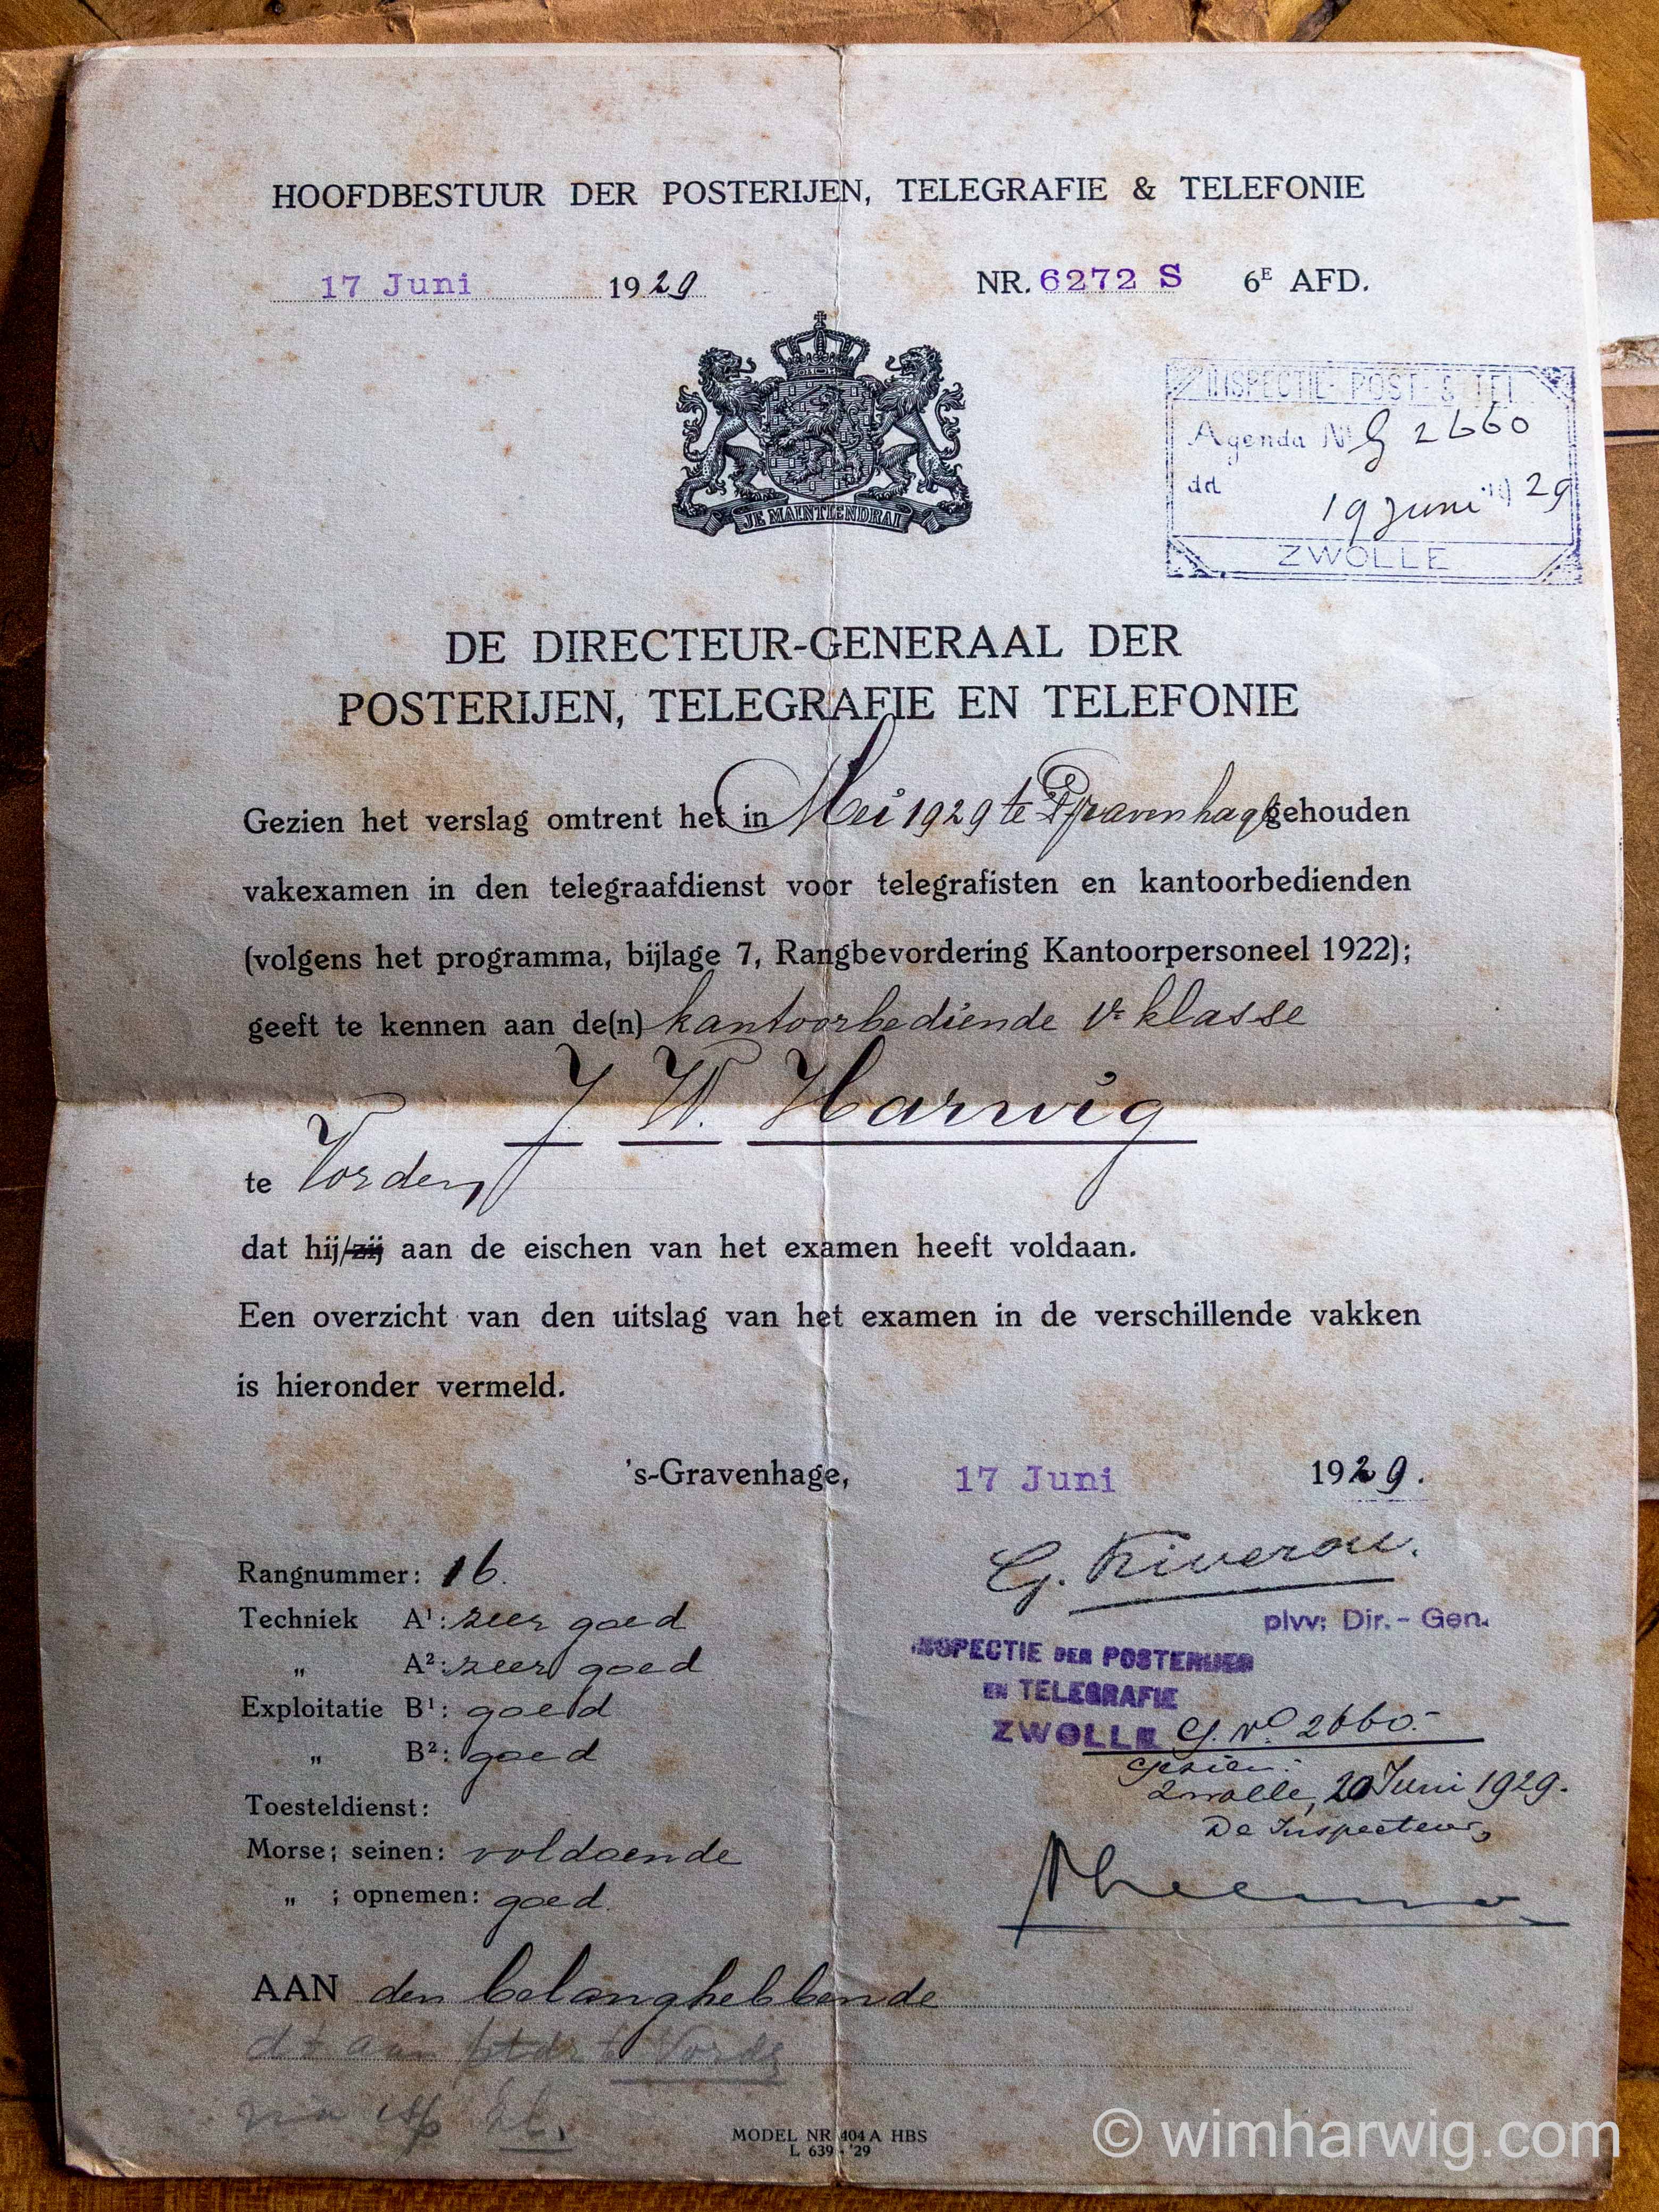 HOOFDBESTUUR DER POSTERIJEN, TELEGRAFIE & TELEFONIE
17 Juni 1929 NR. 6272 S 6E AFD.
JE MAINTIENDRAI
INSPECTIE POST- & TEL
Agenda No G 2660
dd 19 juni 1929
ZWOLLE
DE DIRECTEUR-GENERAAL DER
POSTERIJEN, TELEGRAFIE EN TELEFONIE
Gezien het verslag omtrent het in Mei 1929 te 's Gravenhage gehouden
vakexamen in den telegraafdienst voor telegrafisten en kantoorbedienden
(volgens het programma, bijlage 7, Rangbevordering Kantoorpersoneel 1922);
geeft te kennen aan de(n) kantoorbediende 1e klasse
J. W. Harwig
te Vorden,
dat hij/zij aan de eischen van het examen heeft voldaan.
Een overzicht van den uitslag van het examen in de verschillende vakken
is hieronder vermeld.
's-Gravenhage, 17 Juni 1929.
Rangnummer: 16.
Techniek A1: zeer goed
„ A2: zeer goed
Exploitatie B1: goed
„ B2: goed
Toesteldienst:
Morse; seinen: voldoende
„ ; opnemen: goed.
G.
plvv: Dir.- Gen.
INSPECTIE DER POSTERIJEN
EN TELEGRAFIE
ZWOLLE G. No. 2660.-
Gezien:
Zwolle, 20 Juni 1929.
De Inspecteur,
AAN den belanghebbende
dt aan te Vorden
via
MODEL NR 404 A HBS
L 639 - '29
© wimharwig.com